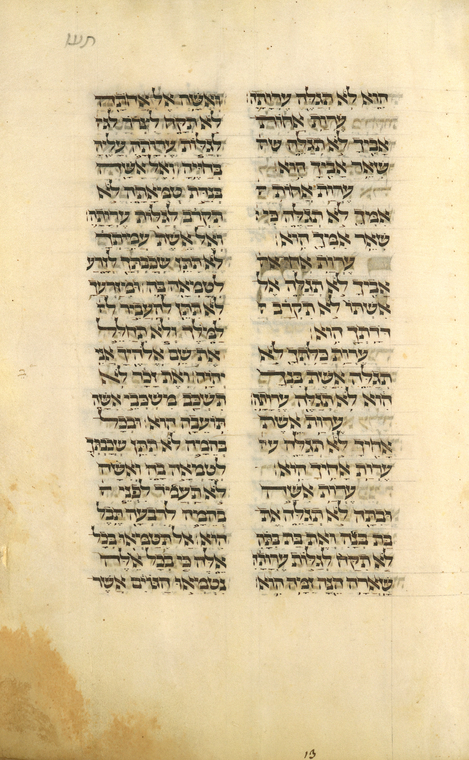 הוא לא תגלה ערותה
ערות אחות
אביך לא תגלה
שאר אביך הוא
ערות אחות
אמך לא תגלה כי
שאר אמך הוא
ערות אחי
אביך לא תגלה אל
אשתו לא תקרב ד
דדתך הוא
ערות כלתך לא
תגלה אשת בנך
הוא לא תגלה ערותה
ערות אשת
אחיך לא תגלה
ערות אחיך הוא
ערות אשה
ובתה לא תגלה את
בת בנה ואת בת בתה
לא תקח לגלות ערותה
שארה הנה זמה הוא
ואשה אל אחתה
לא תקח לצרר לג
לגלות ערותה עליה
בחייה ואל אשה
בנדת טמאתה לא
תקרב לגלות ערותה
ואל אשת עמיתך
לא תתן שכבתך לזרע
לטמאה בה ומזרעך
לא תתן להעביר
למלך ולא תחלל
את שם אלהיך אני
יהוה ואת זכר לא
תשכב משכבי אשה
תועבה הוא ובכל
בהמה לא תתן שכבתך
לטמאה בה ואשה
לא תעמד לפני
בהמה לרבעה תבל
הוא אל תטמאו בכל
אלה כי בכל אלה
נטמאו הגוים אשר
13